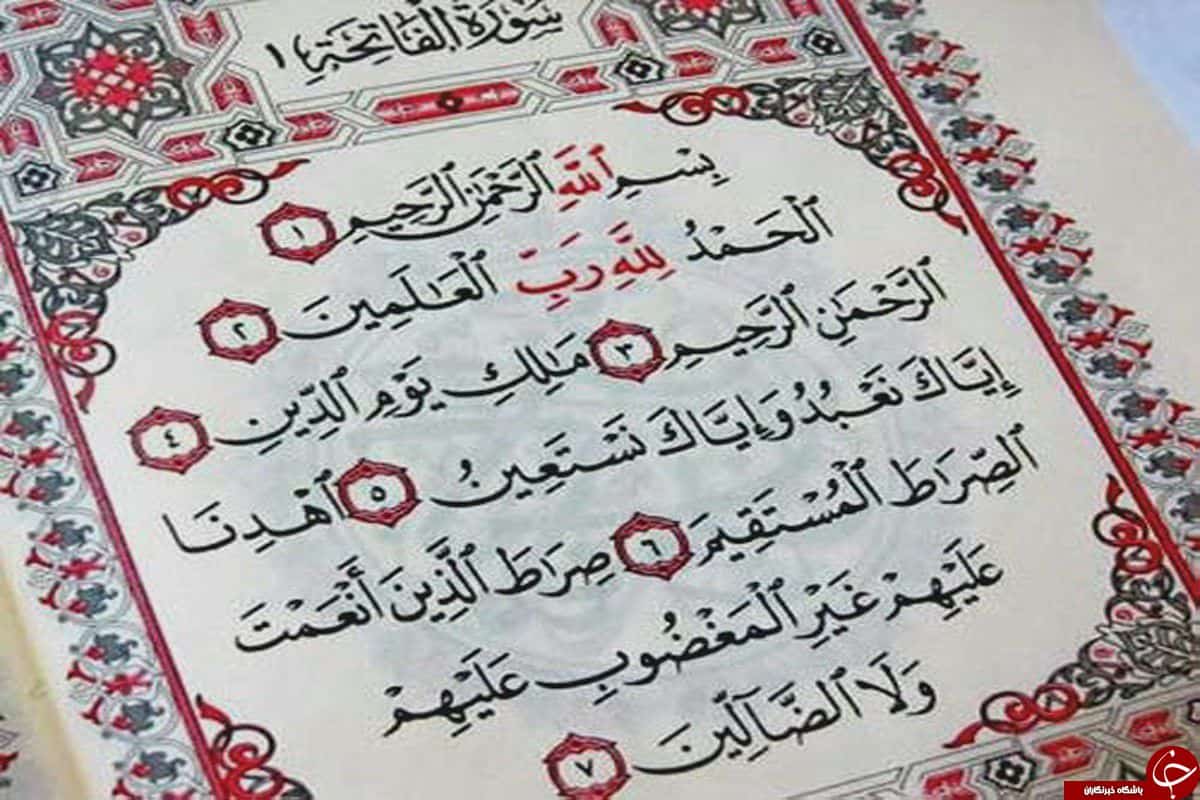 سُورَةُ الْفَاتِحَةِ ١
بِسْمِ ٱللَّهِ ٱلرَّحْمَٰنِ ٱلرَّحِيمِ ١
ٱلْحَمْدُ لِلَّهِ رَبِّ ٱلْعَٰلَمِينَ ٢
ٱلرَّحْمَٰنِ ٱلرَّحِيمِ ٣ مَٰلِكِ يَوْمِ ٱلدِّينِ ٤
إِيَّاكَ نَعْبُدُ وَإِيَّاكَ نَسْتَعِينُ ٥ ٱهْدِنَا
ٱلصِّرَٰطَ ٱلْمُسْتَقِيمَ ٦ صِرَٰطَ ٱلَّذِينَ أَنْعَمْتَ
عَلَيْهِمْ غَيْرِ ٱلْمَغْضُوبِ عَلَيْهِمْ
وَلَا ٱلضَّآلِّينَ ٧
باشگاه خبرنگاران